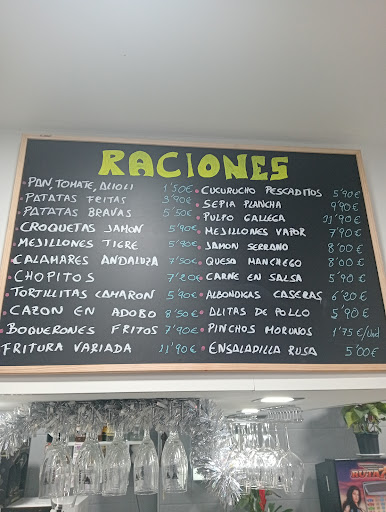 RACIONES
• PAN, TOMATE, ALIOLI 1'50€
• PATATAS FRITAS 3'90€
• PATATAS BRAVAS 5'50€
• CROQUETAS JAMON 5'90€
• MEJILLONES TIGRE 5'90€
• CALAMARES ANDALUZA 7'50€
• CHOPITOS 7'20€
• TORTILLITAS CAMARON 5'90€
• CAZON EN ADOBO 8'50€
• BOQUERONES FRITOS 7'90€
FRITURA VARIADA 11'90€
• CUCURUCHO PESCADITOS 5'90€
• SEPIA PLANCHA 9'90€
• PULPO GALLEGA 11'90€
• MEJILLONES VAPOR 7'90€
• JAMON SERRANO 8'00€
• QUESO MANCHEGO 8'00€
• CARNE EN SALSA 5'90€
• ALBONDIGAS CASERAS 6'20€
• ALITAS DE POLLO 5'90€
• PINCHOS MORUNOS 1'75€/Und
• ENSALADILLA RUSA 5'00€